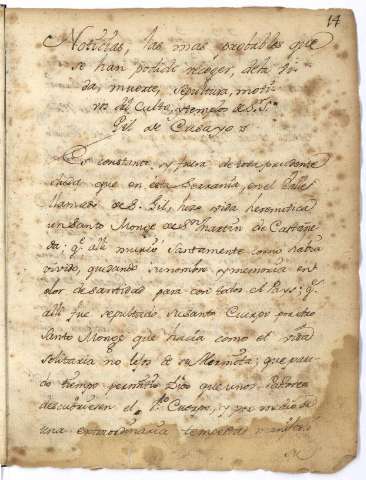 14
Noticias, las mas probables que
se han podido recoger, de la vi-
da, muerte, sepultura, moti-
vos del Culto, y templo de S.
Gil de Casayo
Es constante, y fuera de toda prudente
duda que en esta Serrania, en el Valle
llamado de S. Gil, hizo vida heremitica
un Santo Monge de Sn. Martin de Castañe-
da: q.e alli murio Santamente como habia
vivido, quedando su nombre y memoria en
olor de santidad para con todos el Pays: q.e
alli fue sepultado su Santo Cuerpo por otro
Santo Monge que hacia como el vida
solitaria no lejos de su Hermita; que pasa-
do tiempo permitio Dios que unos Pastores
descubriesen el Sto. Cuerpo, y por medio de
una extraordinaria tempestad